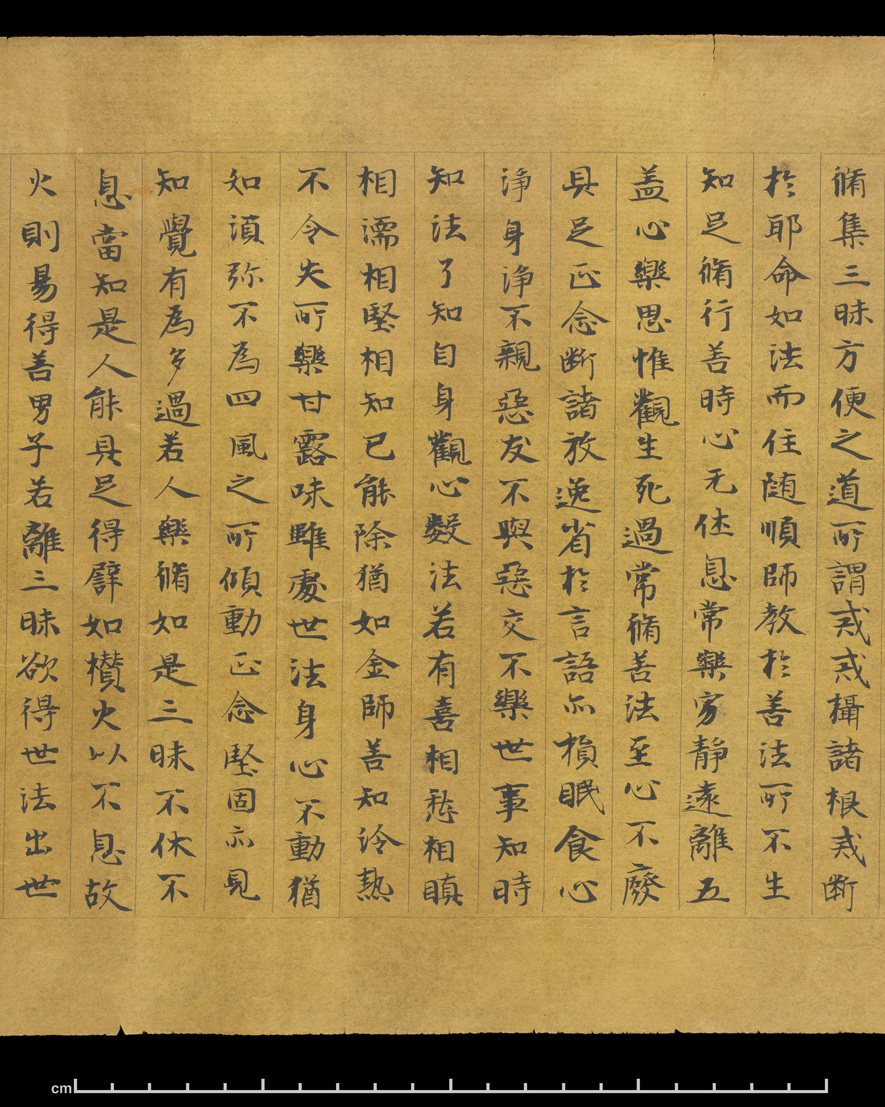 脩集三昧方便之道所謂戒戒攝諸根戒断
於耶命如法而住随順師教於善法所不生
知足脩行善時心无休息常樂家静遠離五
盖心樂思惟觀生死過常脩善法至心不廢
具足正念断諸放逸省於言語亦損眠食心
淨身淨不親惡友不與惡交不樂世事知時
知法了知自身觀心數法若有喜相愁相瞋
相濡相堅相知已能除猶如金師善知冷熱
不令失所樂甘露味雖處世法身心不動猶
如湏弥不為四風之所傾動正念堅固亦見
知覺有為多過若人樂脩如是三昧不休不
息當知是人能具足得譬如攅火以不息故
火則易得善男子若離三昧欲得世法出世